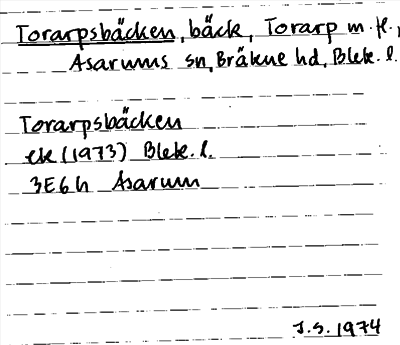 Torarpsbäcken, bäck, Torarp m. fl.,
Asarums sn, Bräkne hd, Blek. l.
Torarpsbäcken
ek (1973) Blek. l.
3E6h Asarum
J.S. 1974